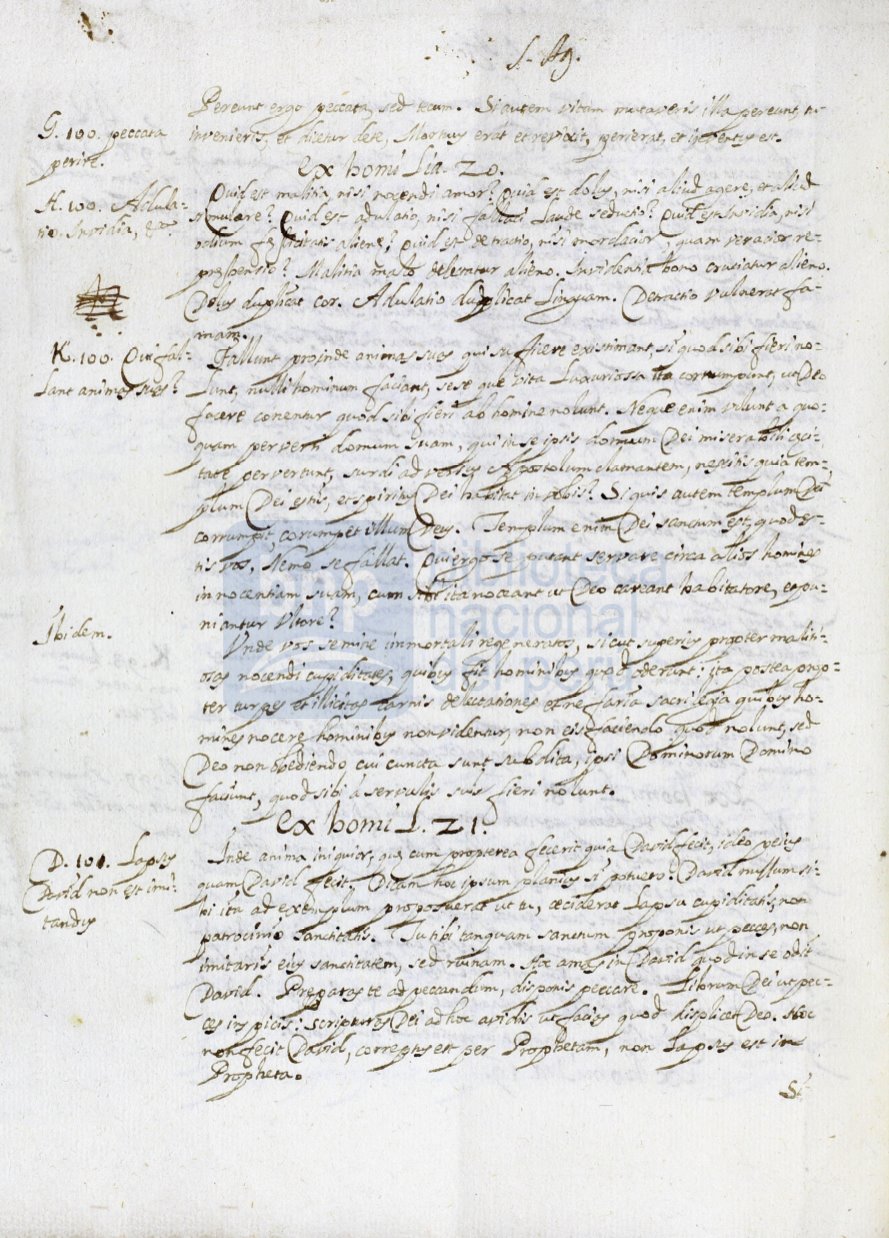 S. Ag.
Pereunt ergo peccata, sed tecum. Si autem vitam mutaveris illa pereunt, tu
invenieris, et dicetur de te, Mortuus erat et revixit, perierat, et inventus est.
G. 100. peccata
perire.
ex homilia. 20.
H. 100. Adula-
tio. Invidia, &a
Quid est malitia, nisi nocendi amor? Quid est dolus, nisi aliud agere, et aliud
simulare? Quid est adulatio, nisi fallaci laude seductio? Quid est Invidia, nisi
odium felicitatis aliene? Quid est detractio, nisi mordacior, quam veracior re-
prehensio? Malitia malo delectatur alieno. Invidentia bono cruciatur alieno.
Dolus duplicat cor. Adulatio duplicat linguam. Detractio vulnerat fa-
mam.
K. 100. Qui fal-
lant animas suas?
Fallunt proinde animas suas qui sufficere existimant, si quod sibi fieri no-
lunt, nulli hominum faciant, sese que vita luxuriossa ita corrumpunt, ut Deo
facere conentur quod sibi fieri ab homine nolunt. Neque enim volunt a quo-
quam perverti domum suam, qui in se ipsis domum Dei miserabili ceci-
tate pervertunt, surdi adversus Apostolum clamantem, nescitis quia tem-
plum Dei estis, et spiritus Dei habitat in vobis? Si quis autem templum Dei
corrumpit, corumpet illum Deus. Templum enim Dei sanctum est, quod es-
tis vos. Nemo se fallat. Qui ergo se putant servare circa alios homines
innocentiam suam, cum sibi ita noceant ut Deo careant habitatore, et pu-
niantur ultore?
Ibidem.
Unde vos semine inmortali regeneratos, sicut superius propter maliti-
osas nocendi cupiditates, quibus fit hominibus quod oderunt: ita postea prop-
ter turpes et illicitas carnis delectationes et nefaria sacrilegia quibus ho-
mines nocere hominibus non videntur, non eis faciendo quod nolunt, sed
Deo non obediendo cui cuncta sunt subdita, ipsi Dominorum Domino
faciunt, quod sibi á servulis suis fieri nolunt.
ex homil. 21.
D. 101. Lapsus
David non est imi-
tandus
Inde anima iniquior, que cum propterea fecerit quia David fecit, ideo peius
quam David fecit. Dicam hoc ipsum planius si potuero? David nullum si-
bi ita ad exemplum proposuerat ut tu, ceciderat lapsu cupiditatis, non
patrocinio sanctitatis. Tu tibi tanquam sanctum proponis ut pecces, non
imitaris eius sanctitatem, sed ruinam. Hoc amas in David quod in se odit
David. Preparas te ad peccandum, disponis peccare. Librum Dei ut pec-
ces inspicis: scripturas Dei ad hoc audis ut facias quod displicet Deo. Hoc
non fecit David, correptus est per Prophetam, non lapsus est in
Propheta.
Si
bnp biblioteca
nacional
del perú